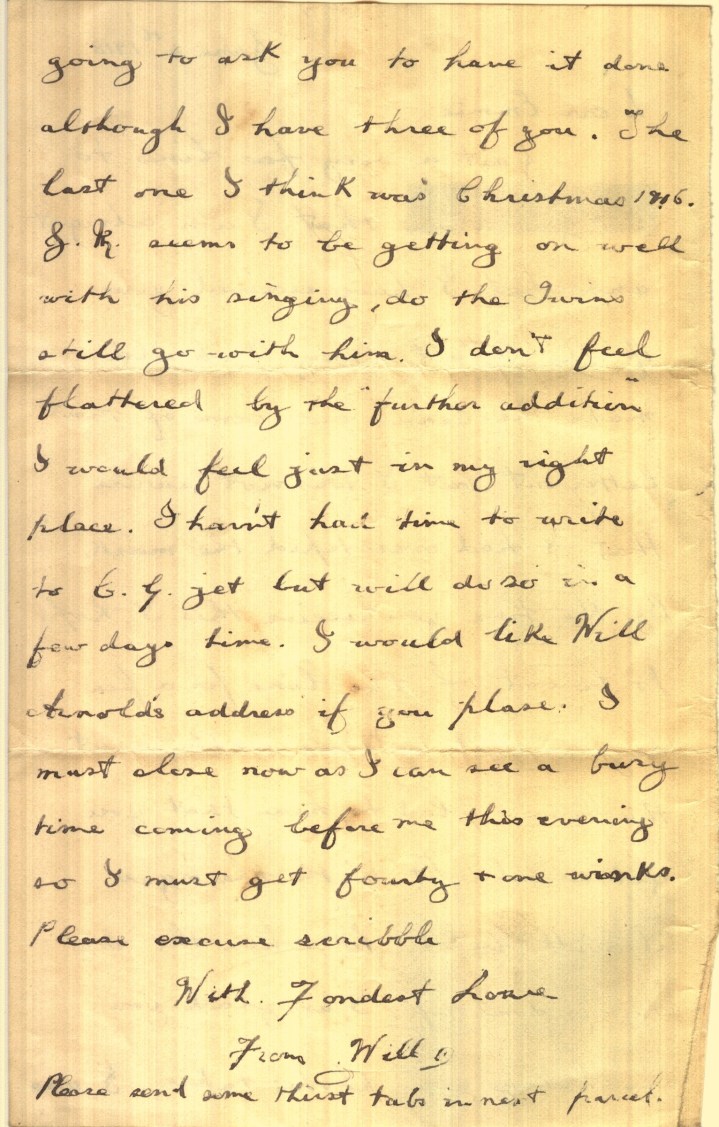 going to ask you to have it done
although I have three of you. The
last one I think was Christmas 1916.
J. R. seems to be getting on well
with his singing, do the Twins
still go with him. I don't feel
flattered by the "further addition"
I would feel just in my right
place. I havn't had time to write
to C. G. yet but will do so in a
few days time. I would like Will
Arnolds address if you plase. I
must close now as I can see a busy
time coming before me this evening
so I must get fourty + one winks.
Please excuse scribble
With Fondest Love
From Will
Please send some thirst tabs in next parcel.